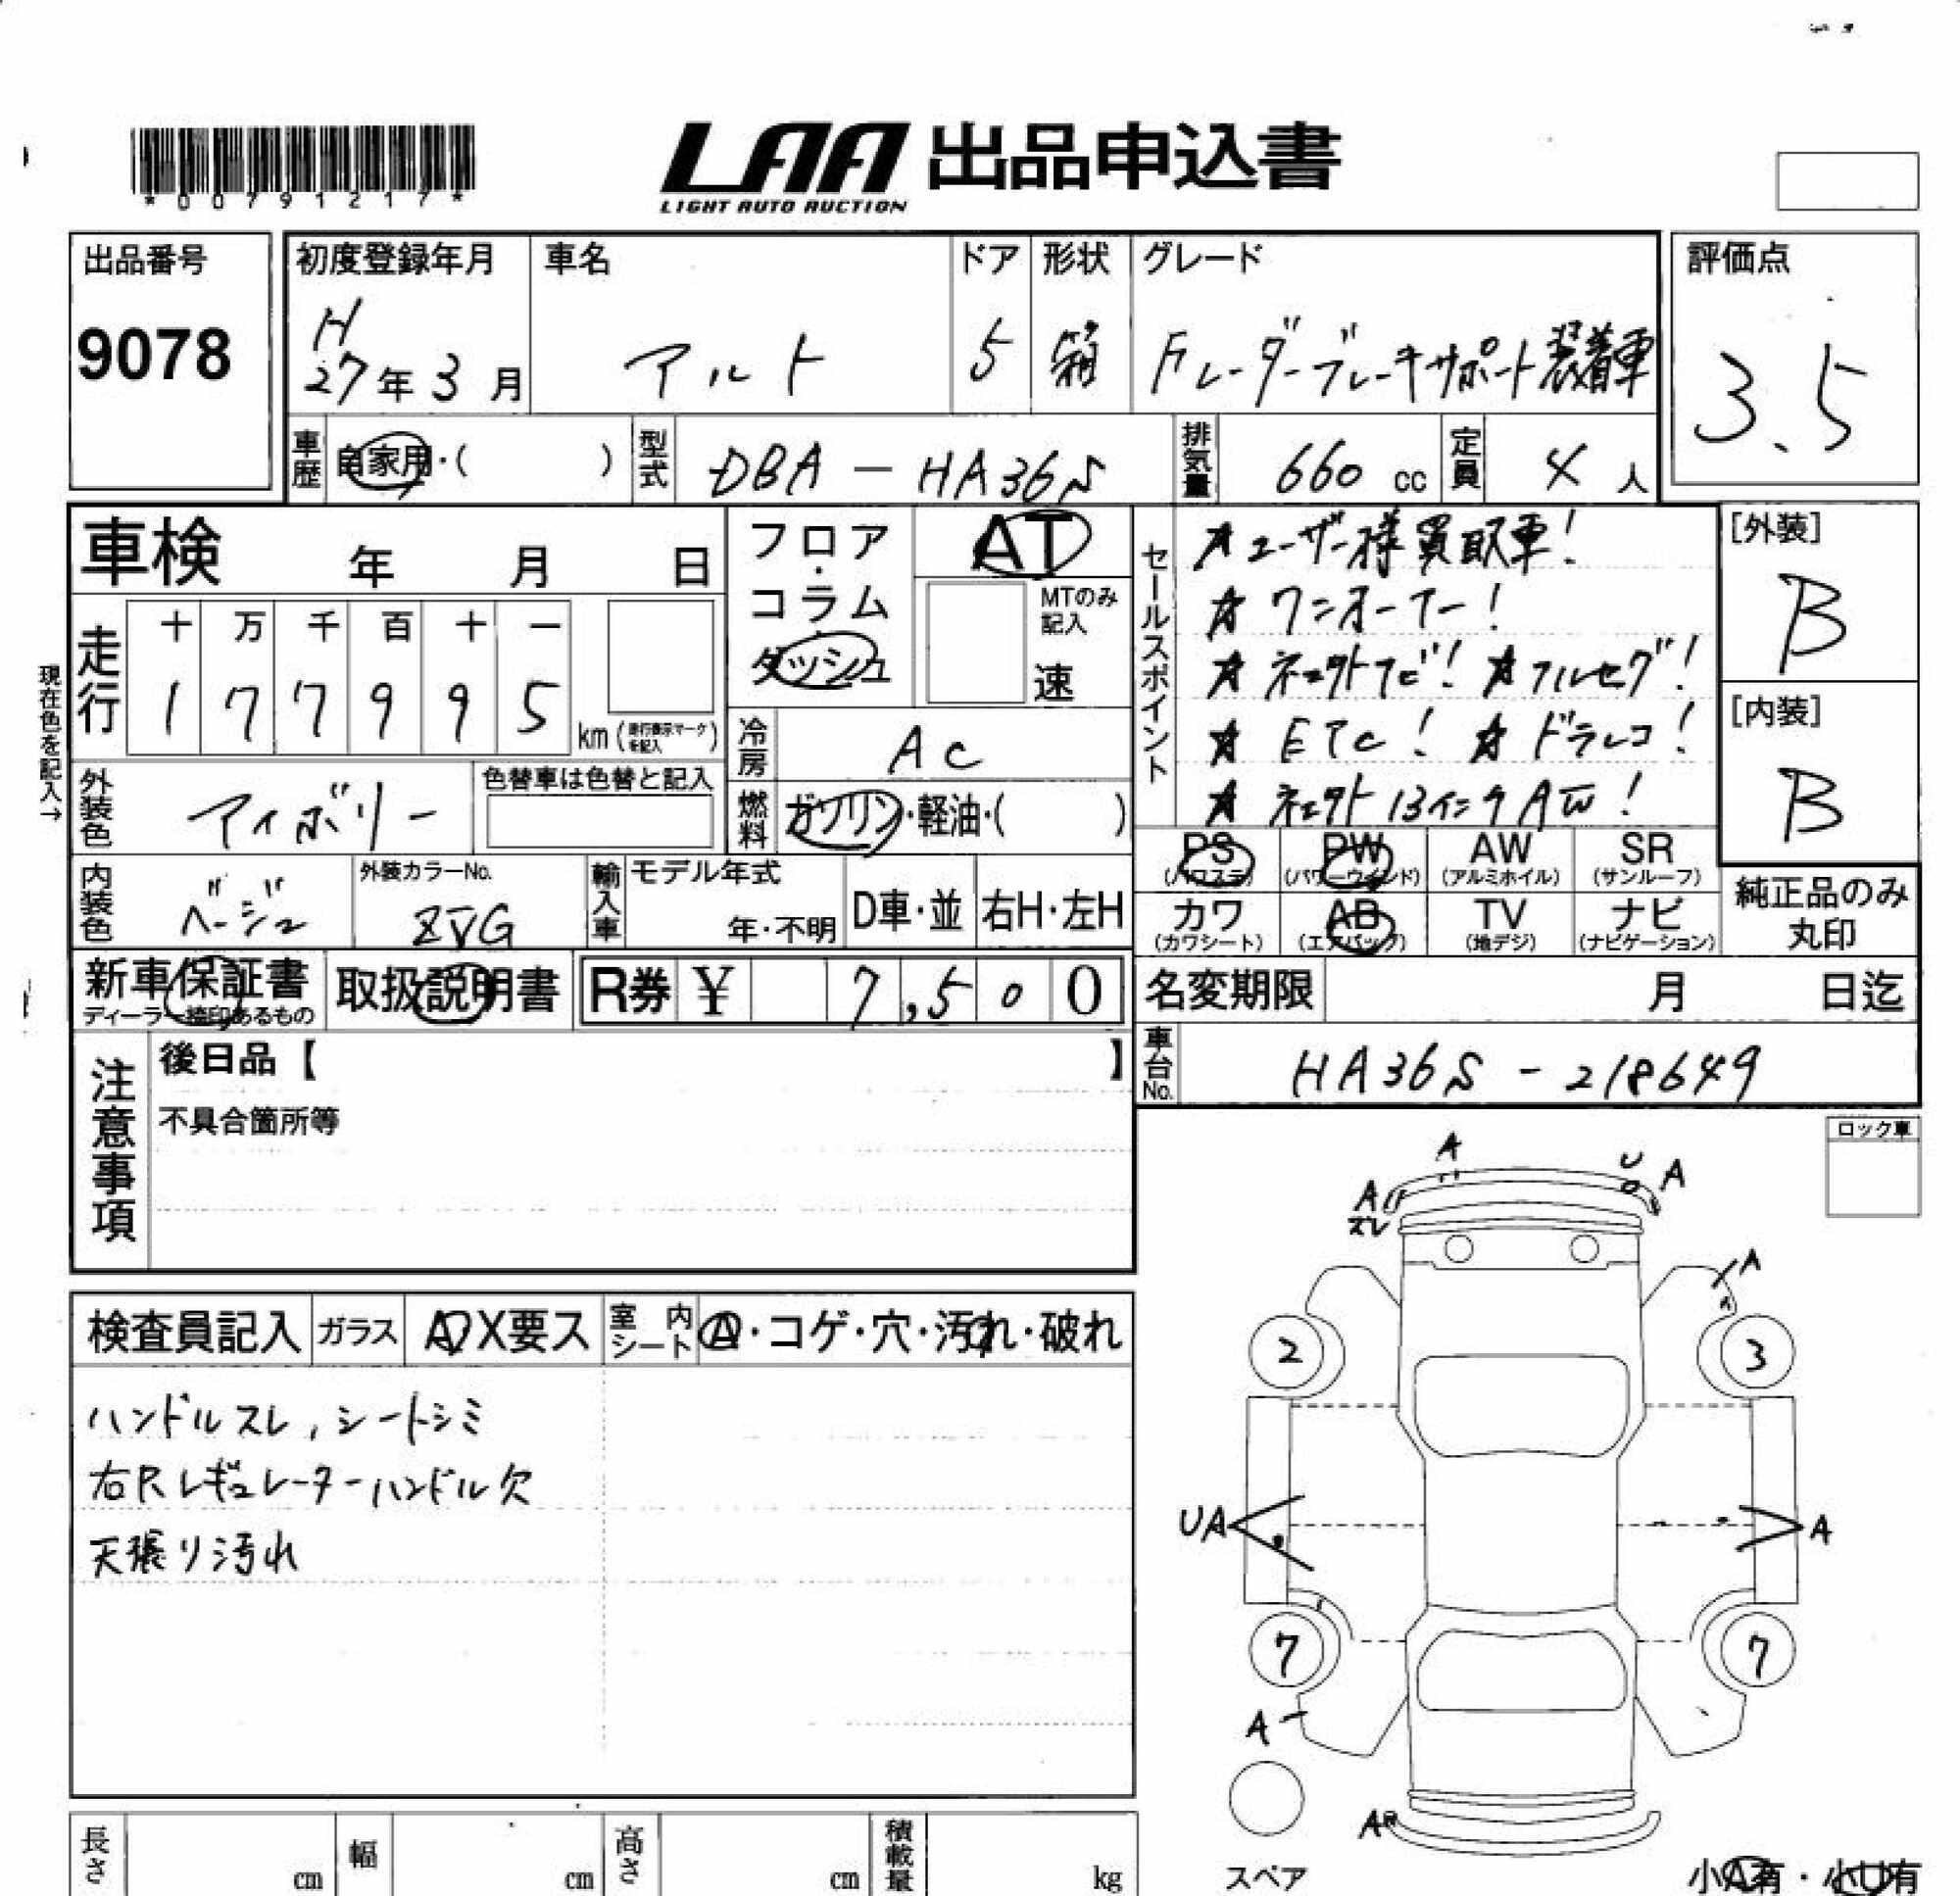 *00791217*
LAA 出品申込書
LIGHT AUTO AUCTION
出品番号
9078
初度登録年月
H
27年3月
車名
アルト
ドア
5
形状
箱
グレード
Fレーダーブレーキサポート装着車
評価点
3.5
車歴
自家用・( )
型式
DBA-HA36S
排気量
660 cc
定員
4人
車検 年 月 日
走行
十 万 千 百 十 一
1 7 7 9 9 5
km(走行表示マークを記入)
現在色を記入→
フロア・コラム・ダッシュ
AT
MTのみ記入
速
冷房
AC
燃料
ガソリン・軽油・( )
外装色
アイボリー
色替車は色替と記入
内装色
ベージュ
外装カラーNo.
ZVG
輸入車
モデル年式
年・不明
D車・並
右H・左H
セールスポイント
★ユーザー様買取車!
★ワンオーナー!
★ネェクトナビ! ★フルセグ!
★ETC! ★ドラレコ!
★ネェクト13インチAW!
[外装]
B
[内装]
B
PS (パワステ)
PW (パワーウインド)
AW (アルミホイル)
SR (サンルーフ)
カワ (カワシート)
AB (エアバック)
TV (地デジ)
ナビ (ナビゲーション)
純正品のみ
丸印
新車保証書
ディーラー捺印あるもの
取扱説明書
R券 ¥ 7,500
名変期限 月 日迄
車台No.
HA36S-218649
注意事項
後日品【 】
不具合箇所等
ロック車
検査員記入
ガラス
A・X要ス
室内シート
A・コゲ・穴・汚れ・破れ
ハンドルスレ,シートシミ
右Rレギュレーターハンドル欠
天張り汚れ
A
U A
A
ズレ
A
2
3
UA
A
7
7
A
A
スペア
小A有・小U有
長さ cm
幅 cm
高さ cm
積載量 kg